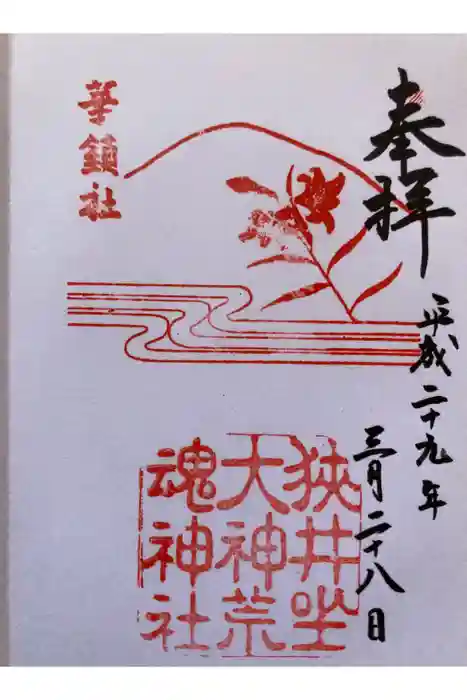 奉拝
平成二十九年
三月二十八日
華鎮社
狭井坐
大神荒
魂神社